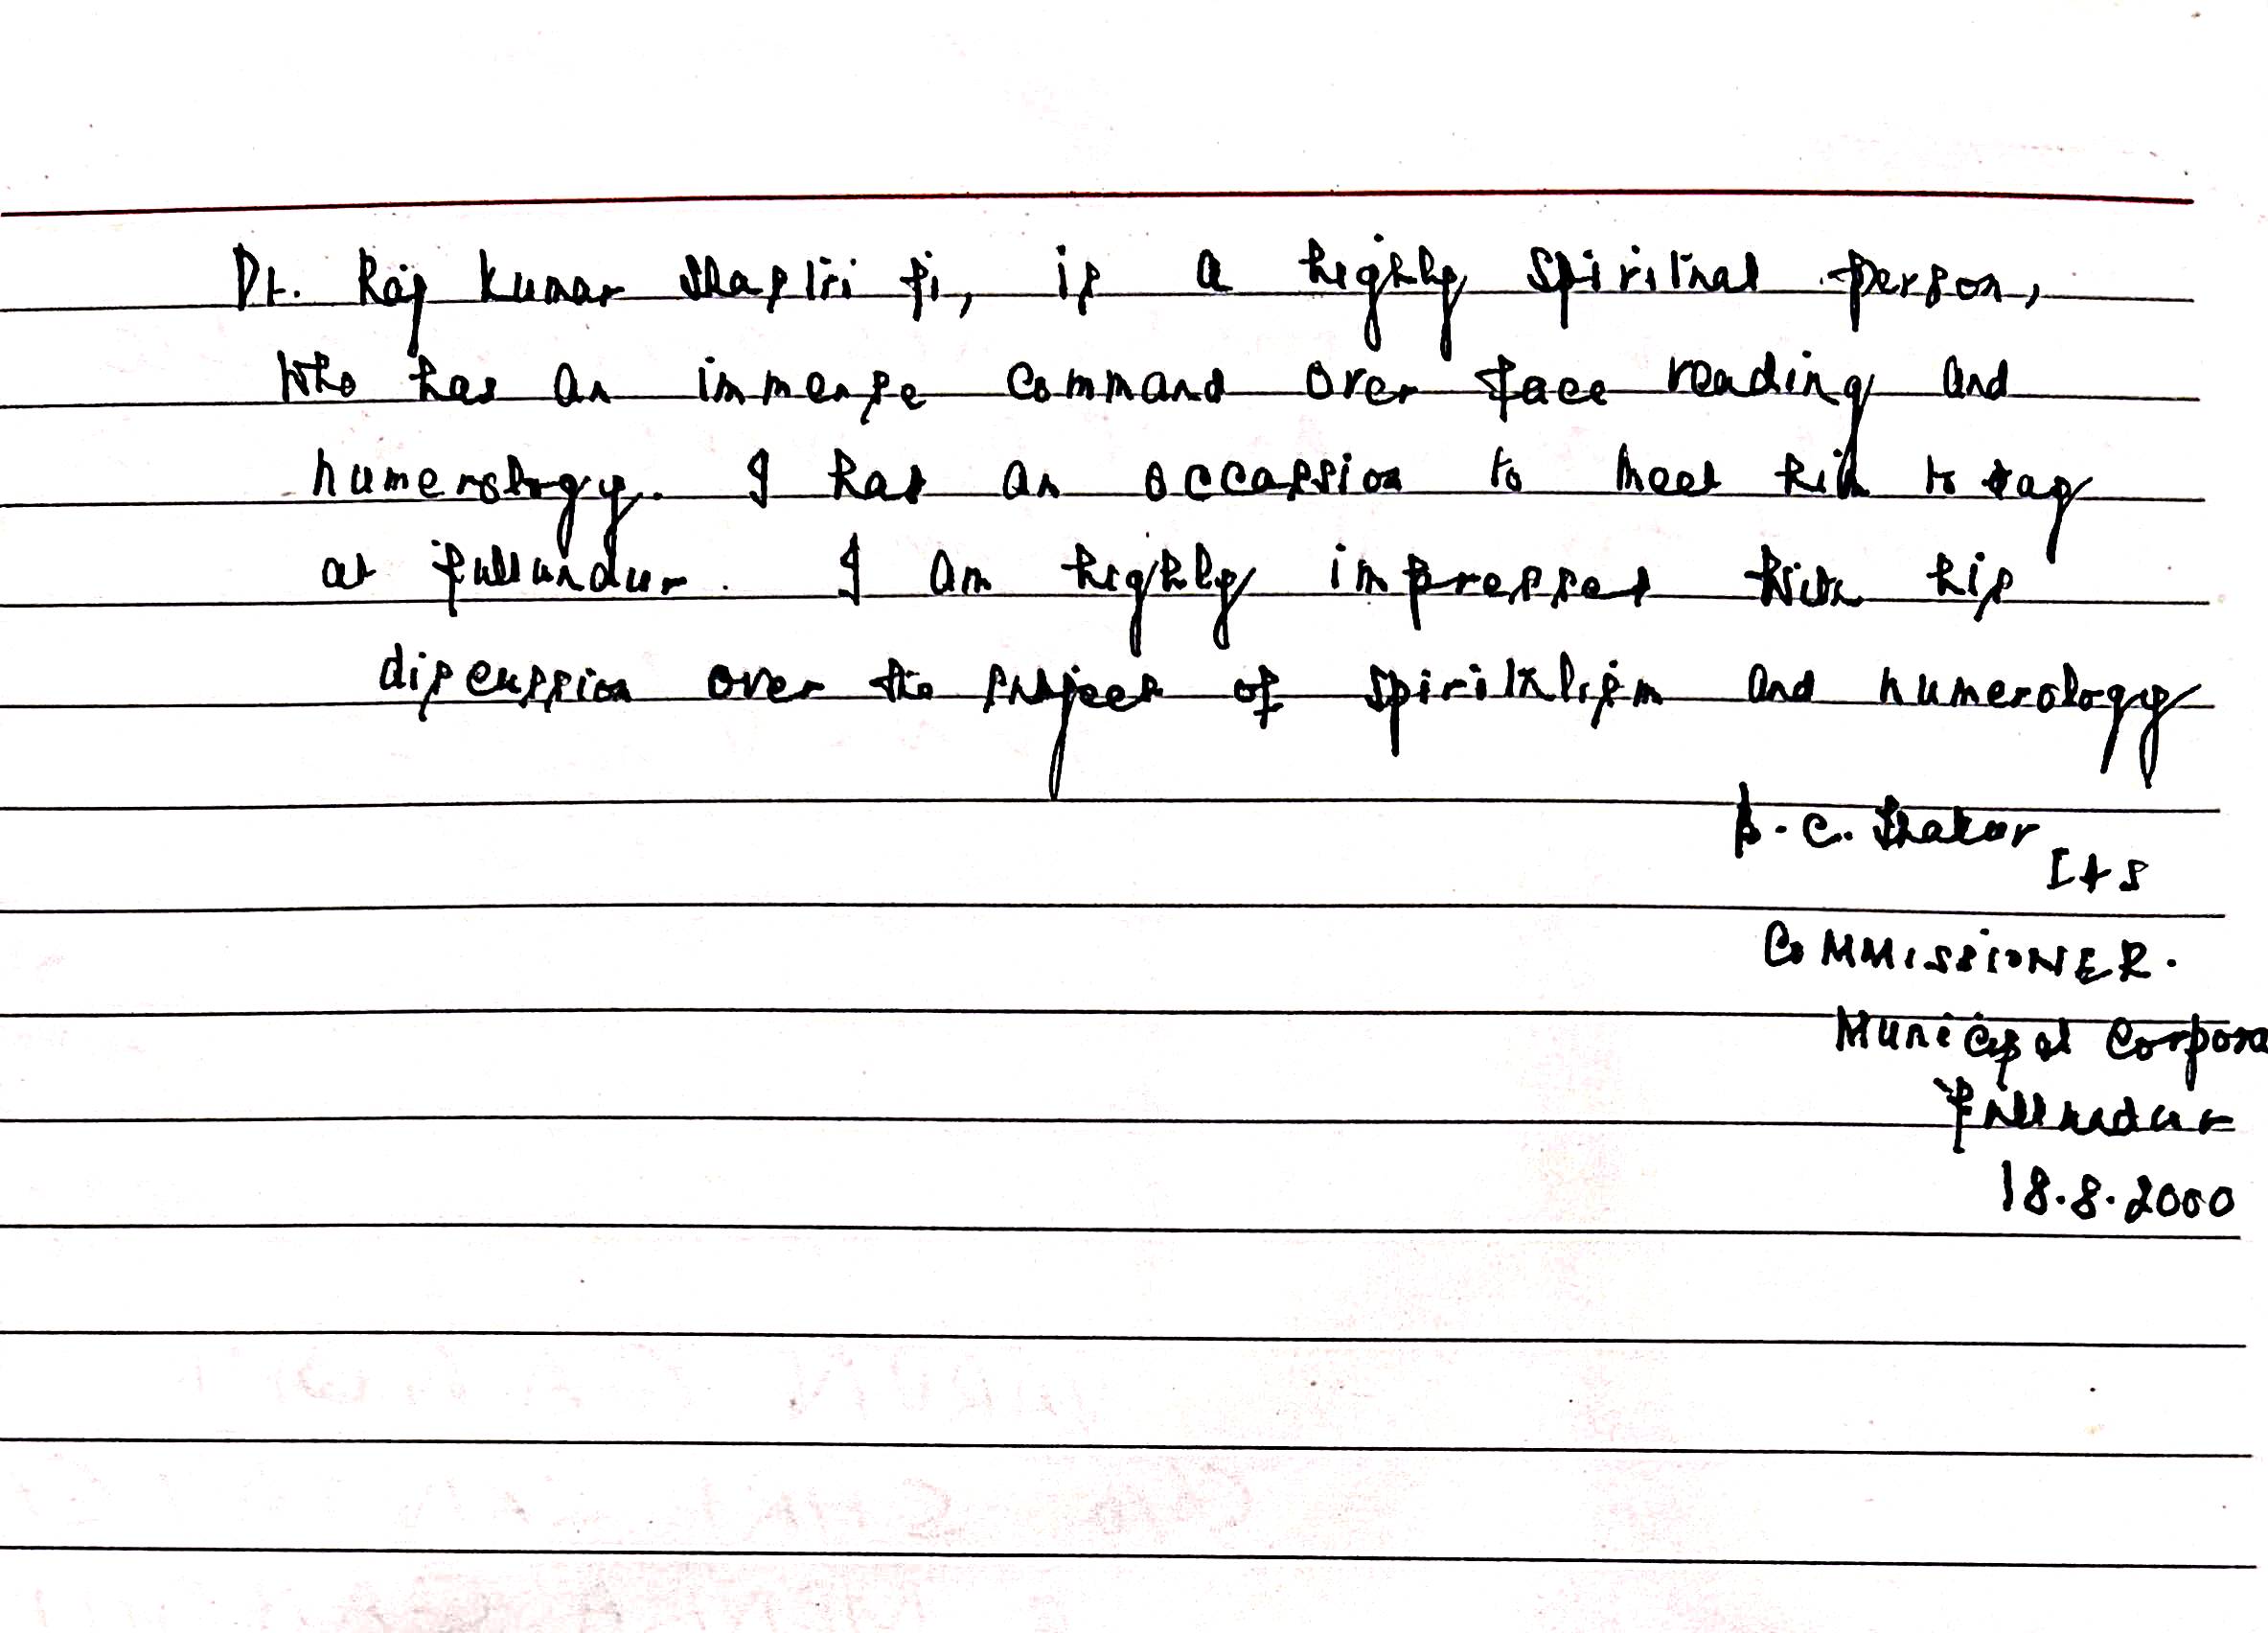 Pt. Raj Kumar Shastri ji, is a highly Spiritual person,
who has an immense command over face reading and
numerology. I had an occassion to meet him to day
at Jullundur. I am highly impressed with his
discussion over the subject of spiritulism and numerology
Thakur
IAS
COMMISSIONER.
Municipal Corpora
Jullundur
18.8.2000